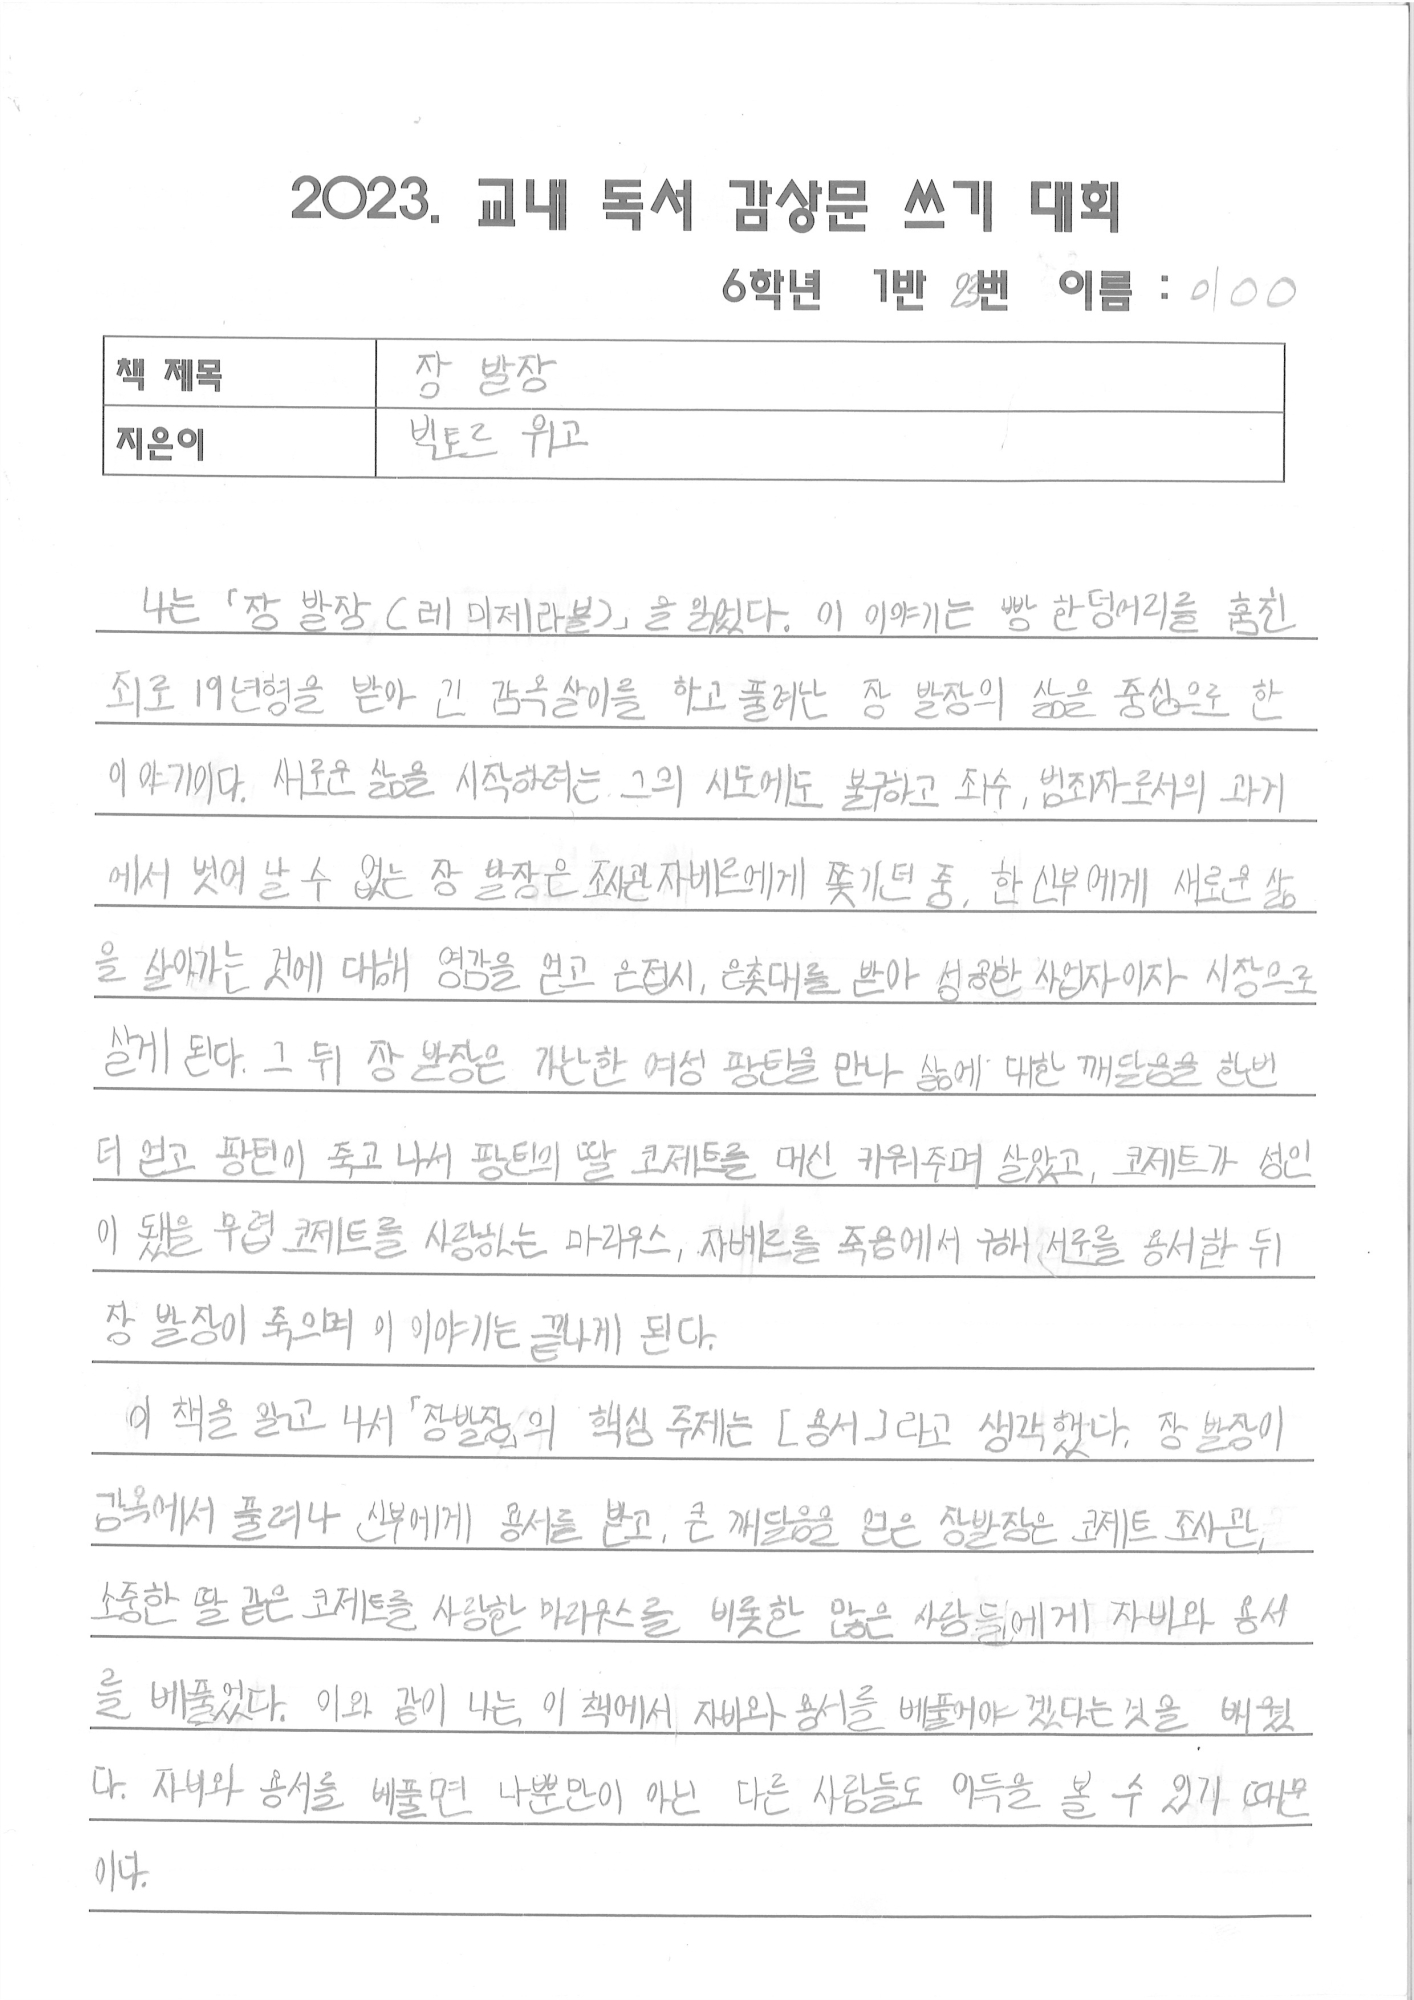 2023. 교내 독서 감상문 쓰기 대회
6학년 1반 23번 이름 : 이OO
책 제목 장 발장
지은이 빅토르 위고
나는 「장 발장(레 미제라블)」을 읽었다. 이 이야기는 빵 한덩어리를 훔친
죄로 19년형을 받아 긴 감옥살이를 하고 풀려난 장 발장의 삶을 중심으로 한
이야기이다. 새로운 삶을 시작하려는 그의 시도에도 불구하고 죄수, 범죄자로서의 과거
에서 벗어 날 수 없는 장 발장은 조사관 자베르에게 쫓기던 중, 한 신부에게 새로운 삶
을 살아가는 것에 대해 영감을 얻고 은접시, 은촛대를 받아 성공한 사업자이자 시장으로
살게 된다. 그 뒤 장 발장은 가난한 여성 팡틴을 만나 삶에 대한 깨달음을 한번
더 얻고 팡틴이 죽고 나서 팡틴의 딸 코제트를 대신 키워주며 살았고, 코제트가 성인
이 됐을 무렵 코제트를 사랑하는 마리우스, 자베르를 죽음에서 구해 서로를 용서한 뒤
장 발장이 죽으며 이 이야기는 끝나게 된다.
이 책을 읽고 나서 「장발장」의 핵심 주제는 [용서]라고 생각했다. 장 발장이
감옥에서 풀려나 신부에게 용서를 받고, 큰 깨달음을 얻은 장발장은 코제트 조사관,
소중한 딸 같은 코제트를 사랑한 마리우스를 비롯한 많은 사람들에게 자비와 용서
를 베풀었다. 이와 같이 나는 이 책에서 자비와 용서를 베풀어야 겠다는 것을 배웠
다. 자비와 용서를 베풀면 나뿐만이 아닌 다른 사람들도 이득을 볼 수 있기 때문
이다.